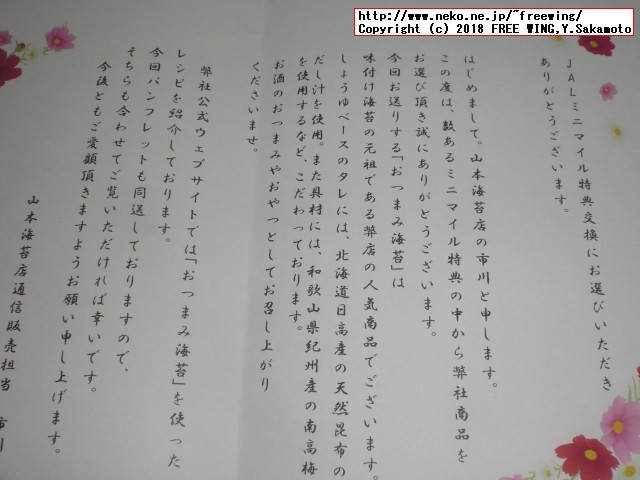 http://www.neko.ne.jp/~freewing/
Copyright (c) 2018 FREE WING,Y.Sakamoto
JALミニマイル特典交換にお選びいただき
ありがとうございます。
はじめまして。山本海苔店の市川と申します。
この度は、数あるミニマイル特典の中から弊社商品を
お選び頂き誠にありがとうございます。
今回お送りする「おつまみ海苔」は
味付け海苔の元祖である弊店の人気商品でございます。
しょうゆベースのタレには、北海道日高産の天然昆布の
だし汁を使用。また具材には、和歌山県紀州産の南高梅
を使用するなど、こだわっております。
お酒のおつまみやおやつとしてお召し上がり
くださいませ。
弊社公式ウェブサイトでは「おつまみ海苔」を使った
レシピを紹介しております。
今回パンフレットも同送しておりますので、
そちらも合わせてご覧いただければ幸いです。
今後ともご愛顧頂きますようお願い申し上げます。
山本海苔店通信販売担当 市川